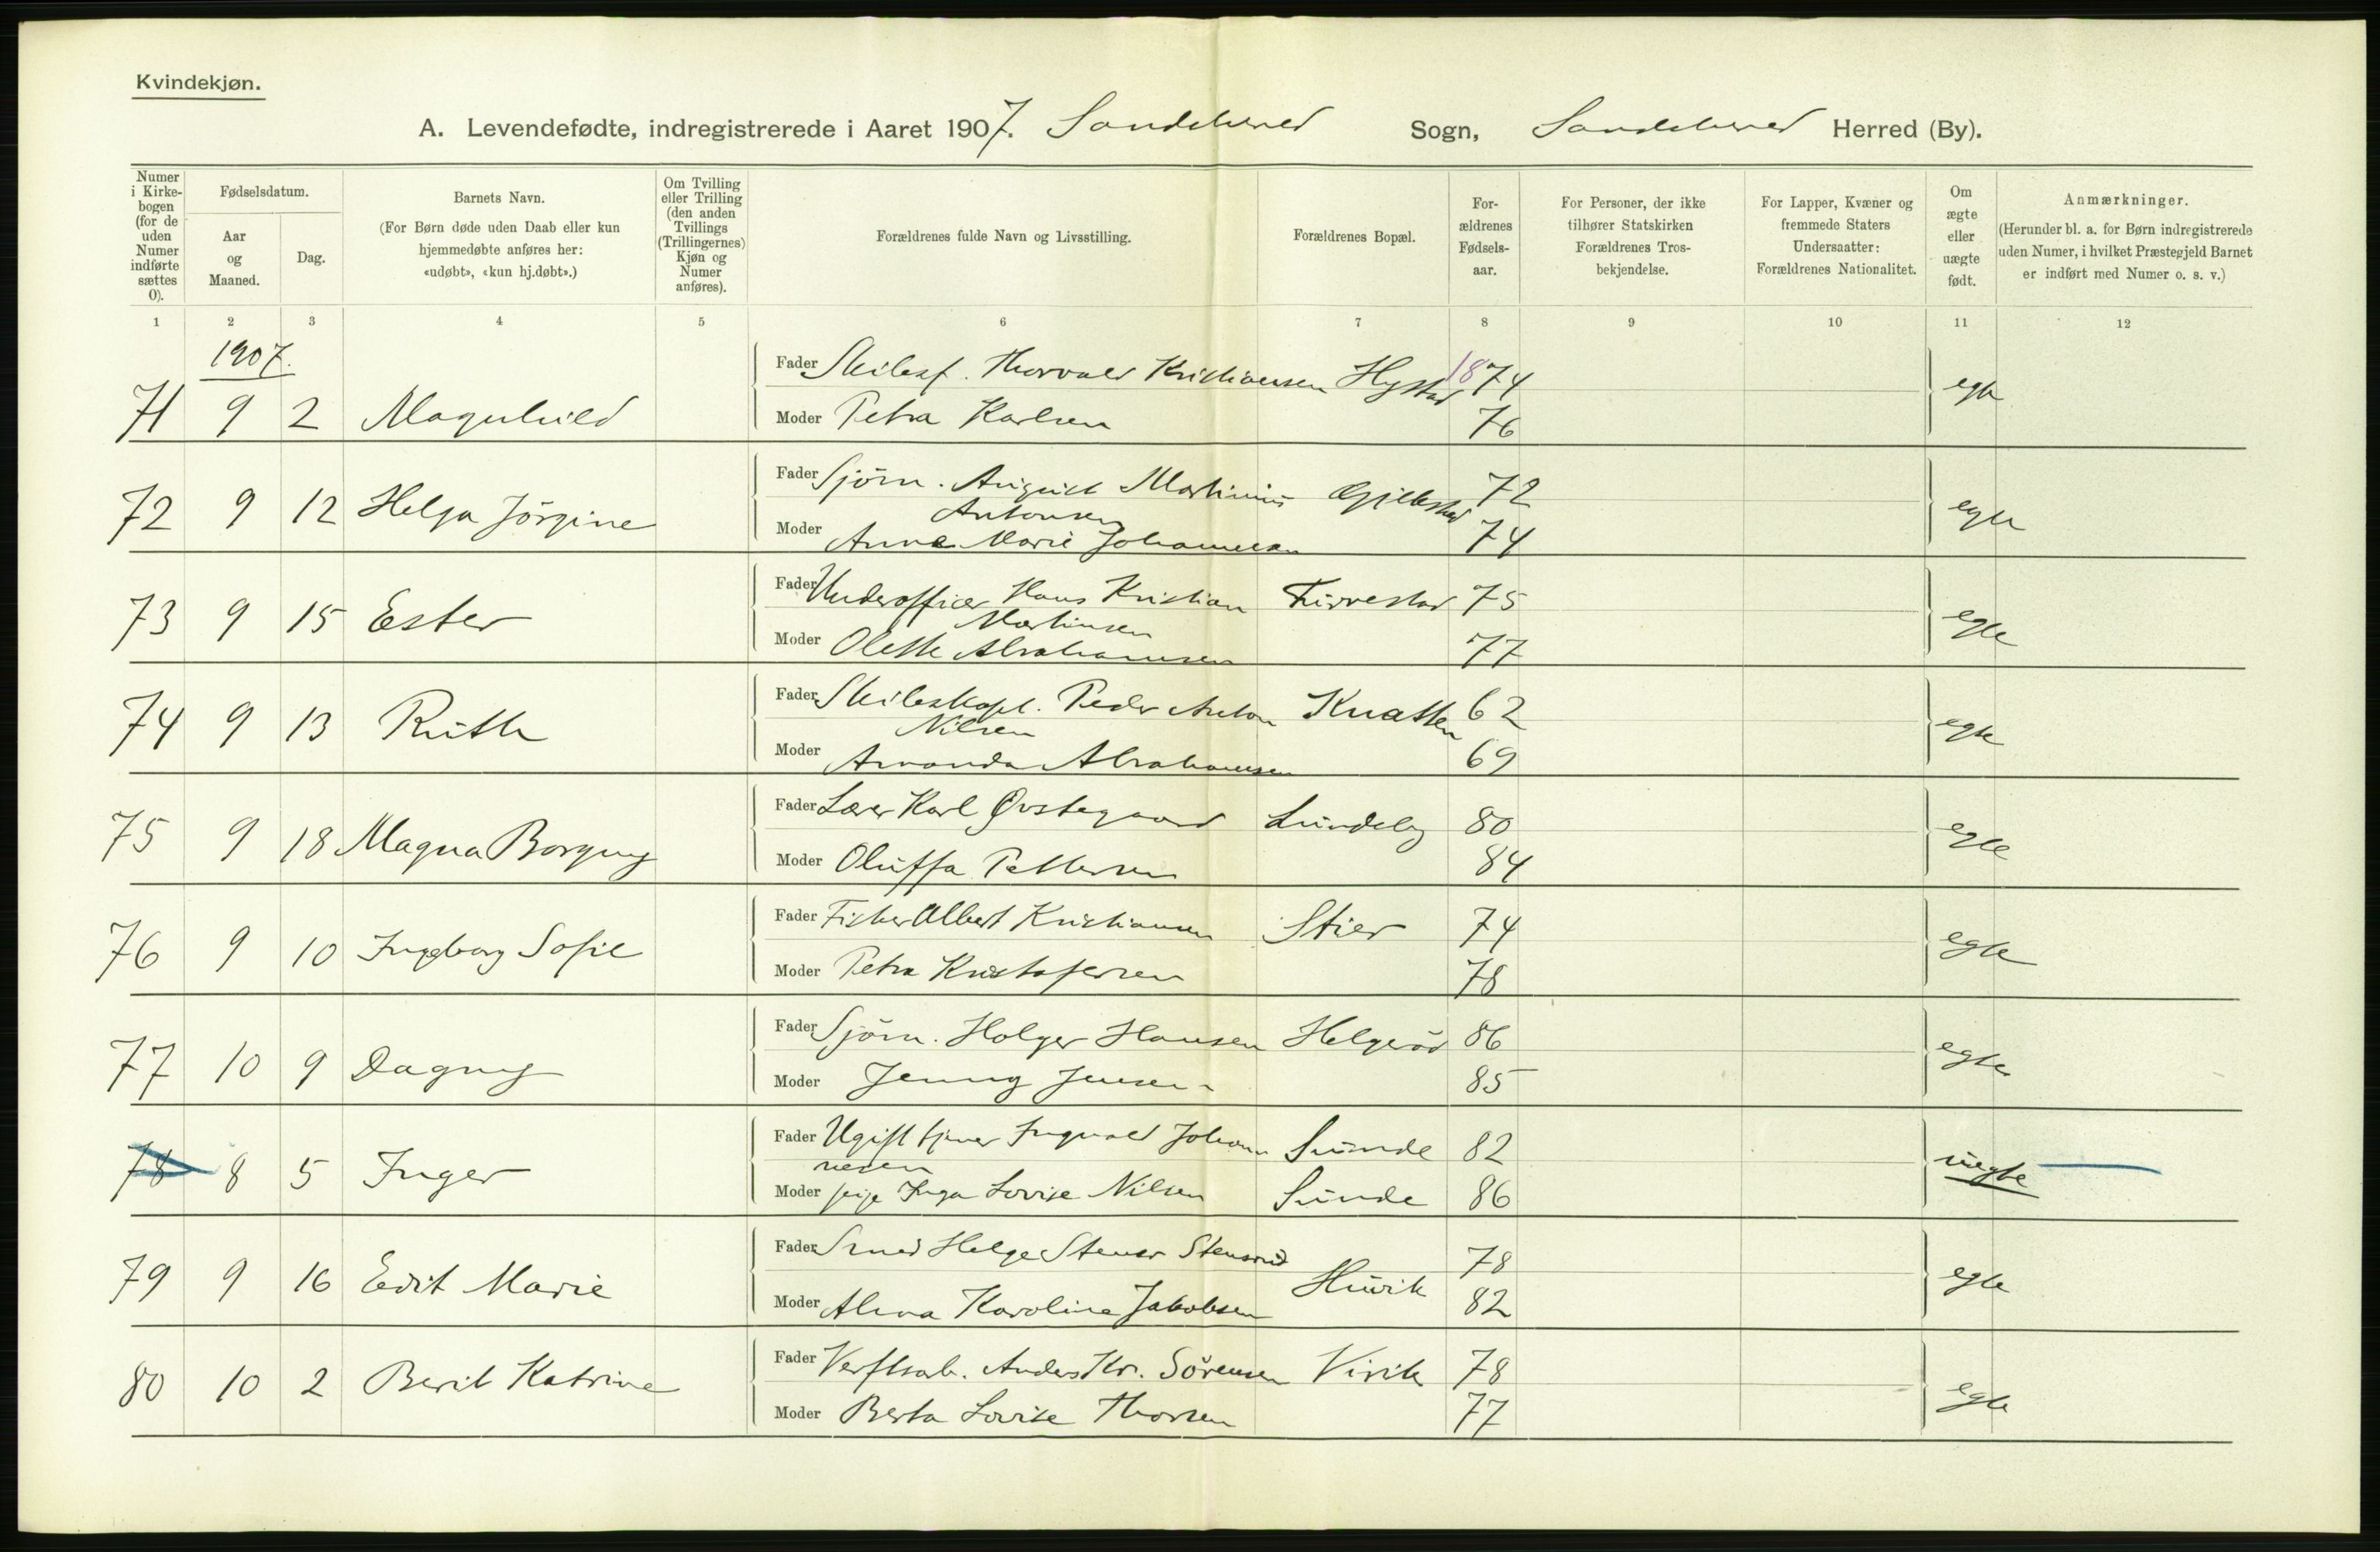 Kvindekjøn.
A. Levendefødte, indregistrerede i Aaret 1907. Sandeherred Sogn, Sandeherred Herred (By).
Numer i Kirkebogen (for de uden Numer indførte sættes 0).
Fødselsdatum.
Aar og Maaned.
Dag.
Barnets Navn.
(For Børn døde uden Daab eller kun hjemmedøbte anføres her: «udøbt», «kun hj.døbt».)
Om Tvilling eller Trilling (den anden Tvillings (Trillingernes) Kjøn og Numer anføres).
Forældrenes fulde Navn og Livsstilling.
Forældrenes Bopæl.
Forældrenes Fødselsaar.
For Personer, der ikke tilhører Statskirken Forældrenes Trosbekjendelse.
For Lapper, Kvæner og fremmede Staters Undersaatter: Forældrenes Nationalitet.
Om ægte eller uægte født.
Anmærkninger.
(Herunder bl. a. for Børn indregistrerede uden Numer, i hvilket Præstegjeld Barnet er indført med Numer o. s. v.)
1 2 3 4 5 6 7 8 9 10 11 12
1907.
Fader Skibsf. Thorvald Kristiansen Hystad 1874
71 9 2 Magnhild egte
Moder Petra Karlsen 76
Fader Sjöm. August Martinius Gjekstad 72
Antonsen
72 9 12 Helga Jörgine egte
Moder Anna Marie Johannesen 74
Fader Underofficer Hans Kristian Furrestad 75
Martinsen
73 9 15 Ester egte
Moder Olette Abrahamsen 77
Fader Skibskapt. Peder Anton Knatten 62
Nilsen
74 9 13 Ruth egte
Moder Amanda Abrahamsen 69
Fader Lærer Karl Østegaard Lundeby 80
75 9 18 Magna Borgny egte
Moder Oluffa Pettersen 84
Fader Fisker Albert Kristiansen Stier 74
76 9 10 Ingeborg Sofie egte
Moder Petra Kristofersen 78
Fader Sjöm. Holger Hansen Helgeröd 86
77 10 9 Dagny egte
Moder Jenny Jensen 85
Fader Ugift tjener Ingvald Johannesen Sunde 82
78 8 5 Inger uegte
Moder pige Inga Lovise Nilsen Sunde 86
Fader Smed Helge Stener Stensrud 78
79 9 16 Edit Marie Huvik egte
Moder Alma Karoline Jakobsen 82
Fader Verftsarb. Anders Kr. Sörensen Virik 78
80 10 2 Berit Katrine egte
Moder Berta Lovise Thorsen 77